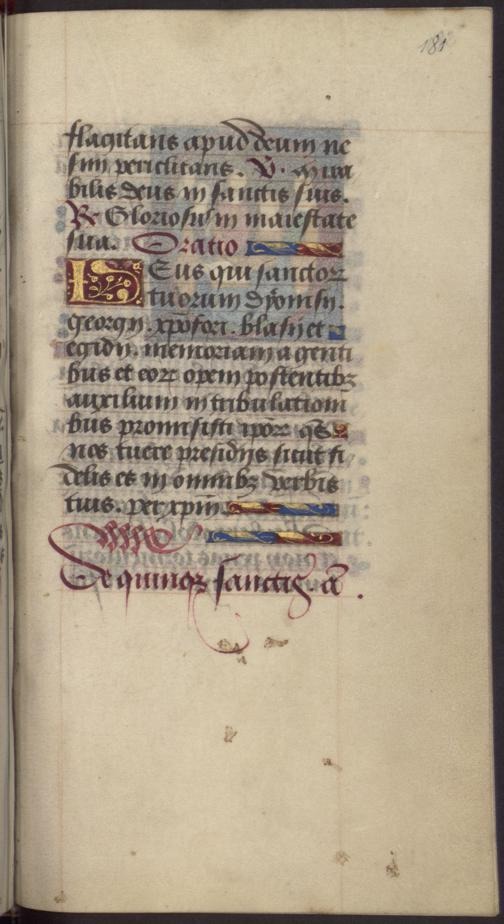 181
flagitans apud deum ne
sim periclitans. V. Mira
bilis deus in sanctis suis.
R Gloriosus in maiestate
sua. Oratio
Deus qui sanctoꝝ
tuorum dyonisij.
georgij. xp̄ofori. blasij et
egidij. memoriam agenti
bus et eoꝝ opem postentibꝫ
auxilium in tribulationi
bus promisisti ip̄oꝝ qs̄
nos tuere presidijs sicut fi
delis es in omnibꝫ verbis
tuis. per xp̄m.
De quinqꝫ sanctis ā.